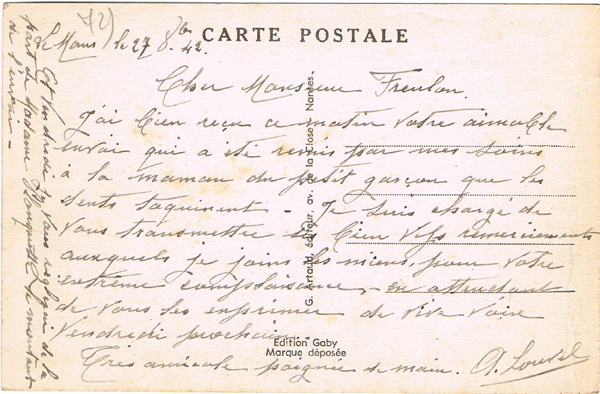 72)
Le Mans, le 27 8bre 42.
CARTE POSTALE
Cher Monsieur Freulon.
J'ai bien reçu ce matin votre aimable
envoi qui a été remis par mes soins
à la maman du petit garçon que les
dents taquinent - Je suis chargé de
vous transmettre les bien vifs remerciements
auxquels je joins les miens pour votre
extrême complaisance, - en attendant
de vous les exprimer de vive voix
Vendredi prochain.
Très amicale poignée de main. A. Louvel
Et Vendredi je vous réglerai de la
part de Madame le montant
de l'envoi -
G. Artaud, éditeur, av. de la Close - Nantes.
Edition Gaby
Marque déposée